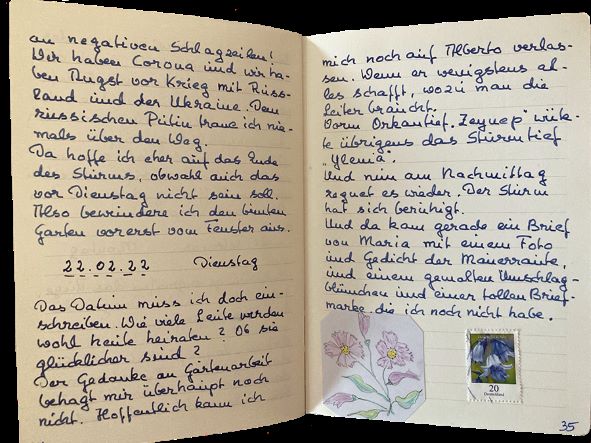 an negativen Schlagzeilen!
Wir haben Corona und wir ha-
ben Angst vor Krieg mit Russ-
land und der Ukraine. Dem
russischen Putin traue ich nie-
mals über den Weg.
Da hoffe ich eher auf das Ende
des Sturms, obwohl auch das
vor Dienstag nicht sein soll.
Also bewundere ich den bunten
Garten vorerst vom Fenster aus.
22.02.22 Dienstag
Das Datum muss ich doch ein-
schreiben. Wie viele Leute werden
wohl heute heiraten? Ob sie
glücklicher sind?
Der Gedanke an Gartenarbeit
behagt mir überhaupt noch
nicht. Hoffentlich kann ich
mich noch auf Alberto verlas-
sen. Wenn er wenigstens al-
les schafft, wozu man die
Leiter braucht.
Vorm Orkantief "Zeynep" wük-
te übrigens das Sturmtief
"Ylenia".
Und nun am Nachmittag
regnet es wieder. Der Sturm
hat sich beruhigt.
Und da kam gerade ein Brief
von Maria mit einem Foto
und Gedicht der Mauerraute,
und einem gemalten Umschlag-
blümchen und einer tollen Brief-
marke, die ich noch nicht habe.
20
Deutschland
35